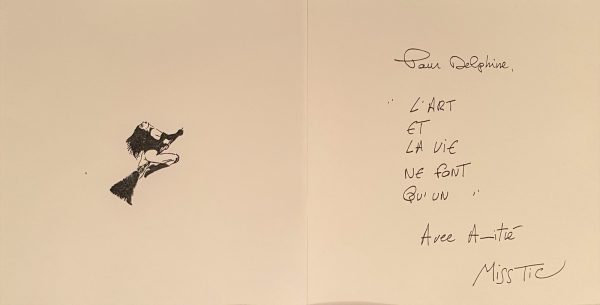 Pour Delphine,
" L'ART
ET
LA VIE
NE FONT
QU'UN "
Avec Amitié
MISSTIC